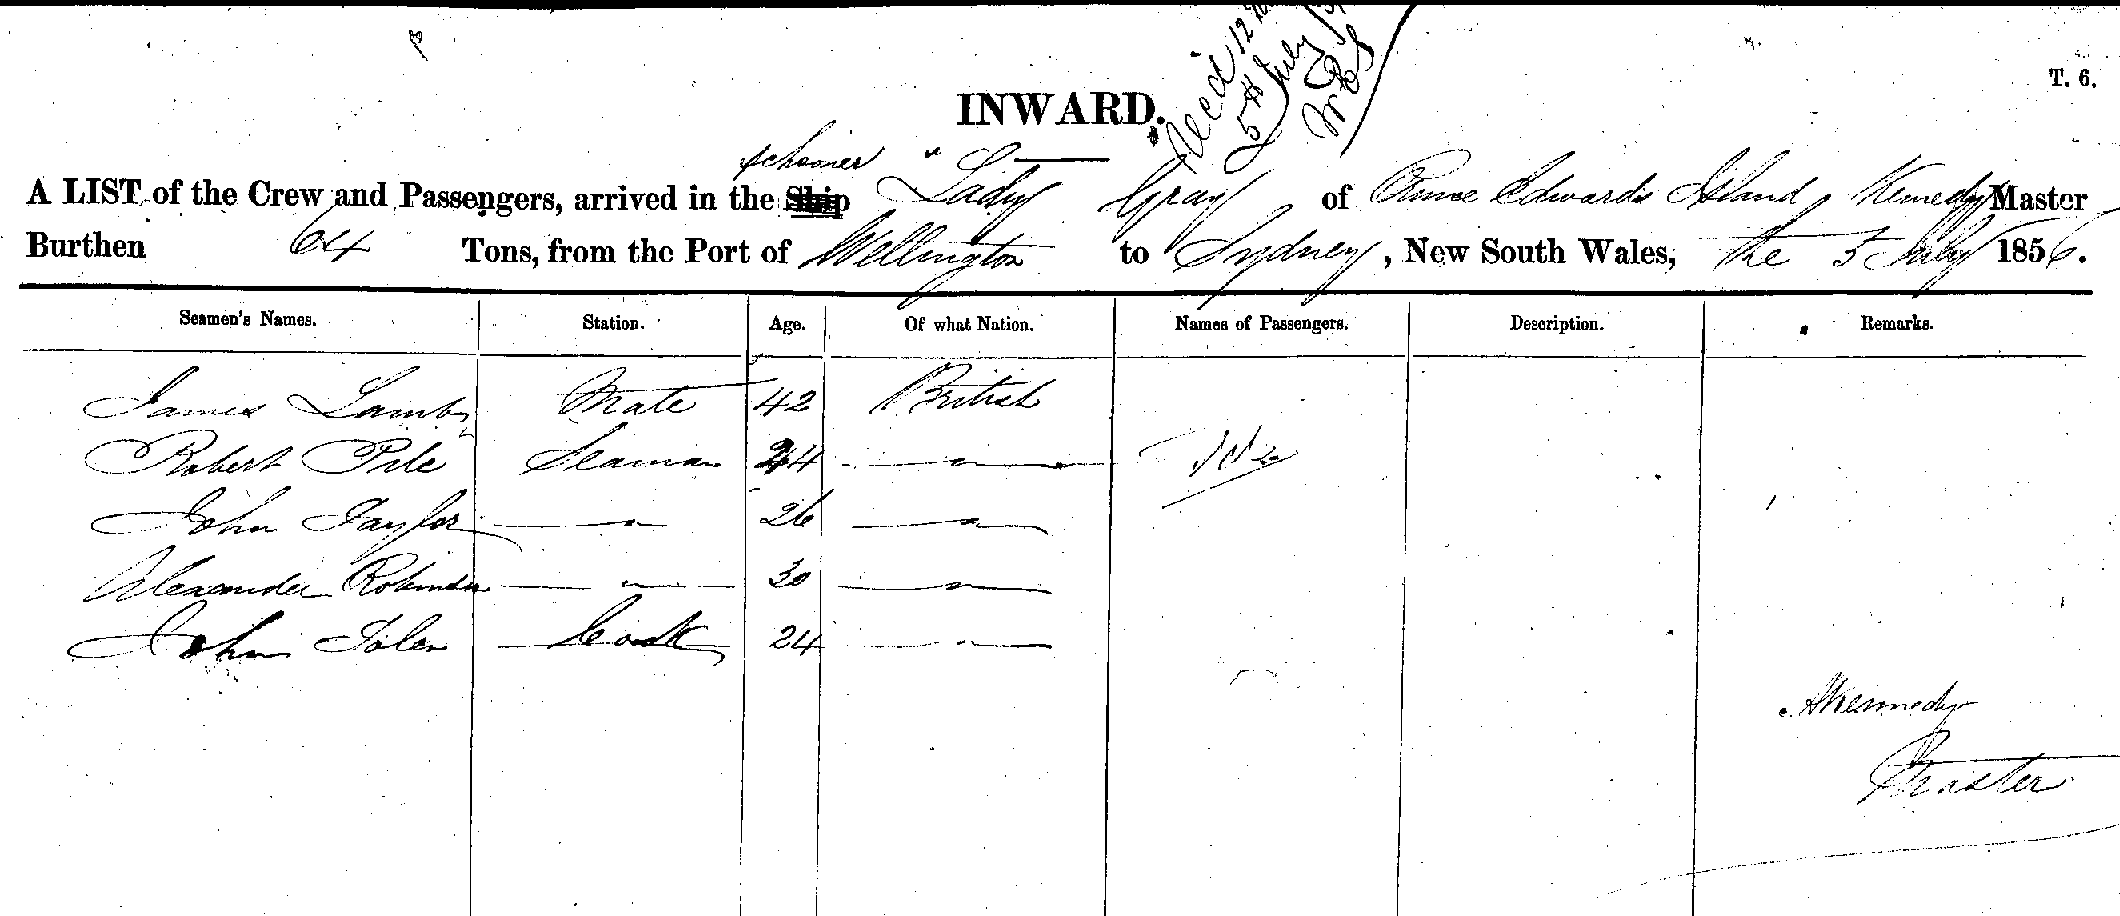 T. 6.
Recd 12
5th July
INWARD.
schooner
A LIST of the Crew and Passengers, arrived in the Ship "Lady Gray of Prince Edwards Island, Kennedy Master
Burthen 64 Tons, from the Port of Wellington to Sydney, New South Wales, the 5 July 1856.
Seamen's Names. Station. Age. Of what Nation. Names of Passengers. Description. Remarks.
James Lamb Mate 42 British
Robert Pile Seaman 24 — " —
John Taylor — " — 26 — " —
Alexander Robinson — " — 30 — " —
John Cook 24 — " —
AKennedy
Master